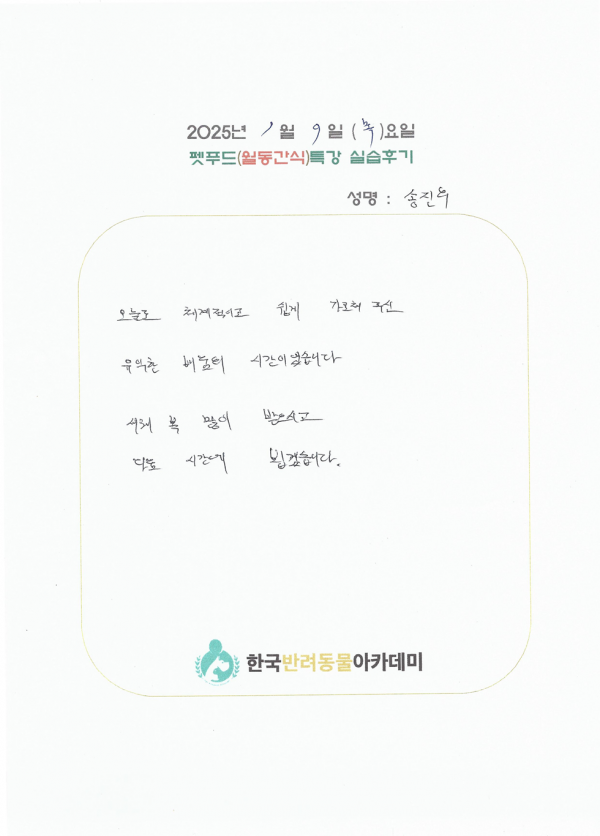 2025년 1월 9일 (목)요일
펫푸드(월동간식)특강 실습후기
성명 : 송진우
오늘도 체계적이고 쉽게 가르쳐 주신
유익한 배움터 시간이었습니다
새해 복 많이 받으시고
다음 시간에 뵙겠습니다.
한국반려동물아카데미